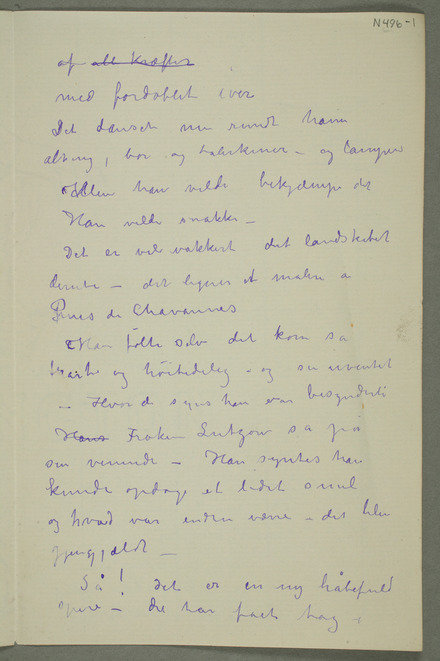 N 496-1
af alle Kræfter
med fordoblet iver
Det dansed nu rundt ham
alting, bor og tallerkener – og lamper
Men han vilde bekjæmpe det
Han vilde snakke –
Det er vel vakkert det landskabet
derute – det ligner et maleri a
Puvis de Chavannes
Han følte selv det kom så
og høitidelig – og så uventet
– Hvor de syns han var besynderli
Hans Frøken Lützow så på
sin veninde – Han syntes han
kunde opdage et lidet smil
og hvad var endnu værre – det blev
gjengjældt –
Så! det er en ny håbefuld
– de har fået tag i